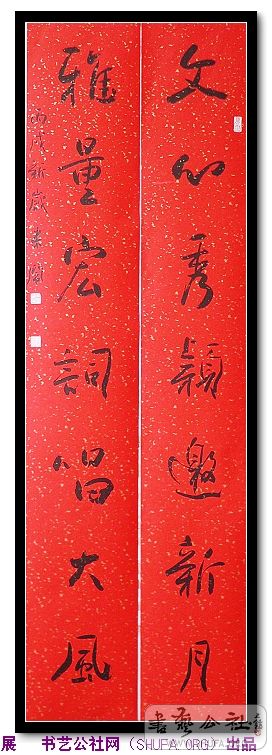 文心秀颖邀新月
雅量宏詞唱大風
丙戌新歲
書藝公社
展 书艺公社网（SHUFA.ORG）出品